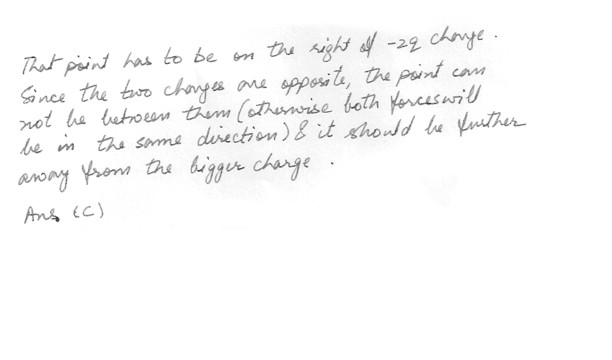 That point has to be on the right of -2q charge.
Since the two charges are opposite, the point can
not be between them (otherwise both forces will
be in the same direction) & it should be further
away from the bigger charge .
Ans (C)